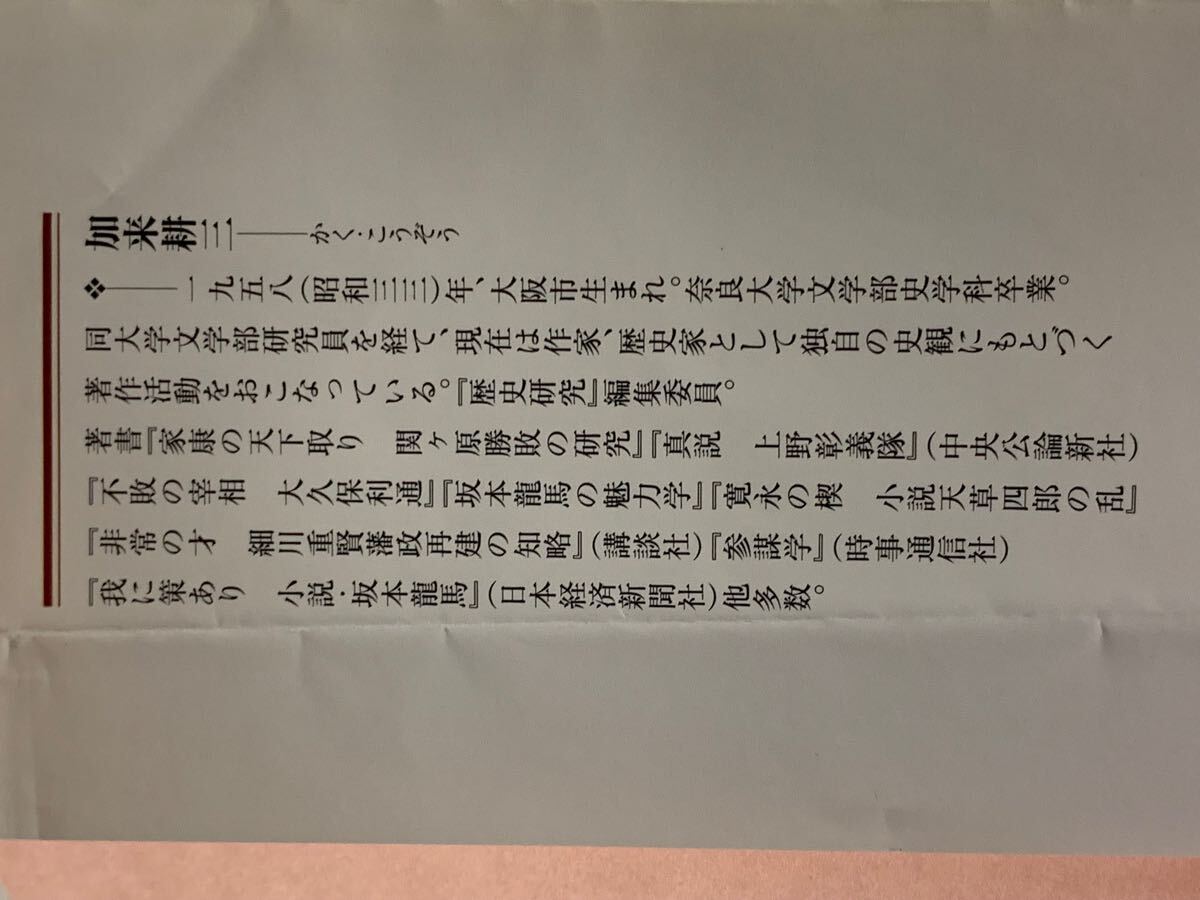 加来耕三――かく・こうぞう
❖――一九五八(昭和三三)年、大阪市生まれ。奈良大学文学部史学科卒業。
同大学文学部研究員を経て、現在は作家、歴史家として独自の史観にもとづく
著作活動をおこなっている。『歴史研究』編集委員。
著書『家康の天下取り　関ヶ原勝敗の研究』『真説　上野彰義隊』(中央公論新社)
『不敗の宰相　大久保利通』『坂本龍馬の魅力学』『寛永の楔　小説天草四郎の乱』
『非常の才　細川重賢藩政再建の知略』(講談社)『参謀学』(時事通信社)
『我に策あり　小説・坂本龍馬』(日本経済新聞社)他多数。